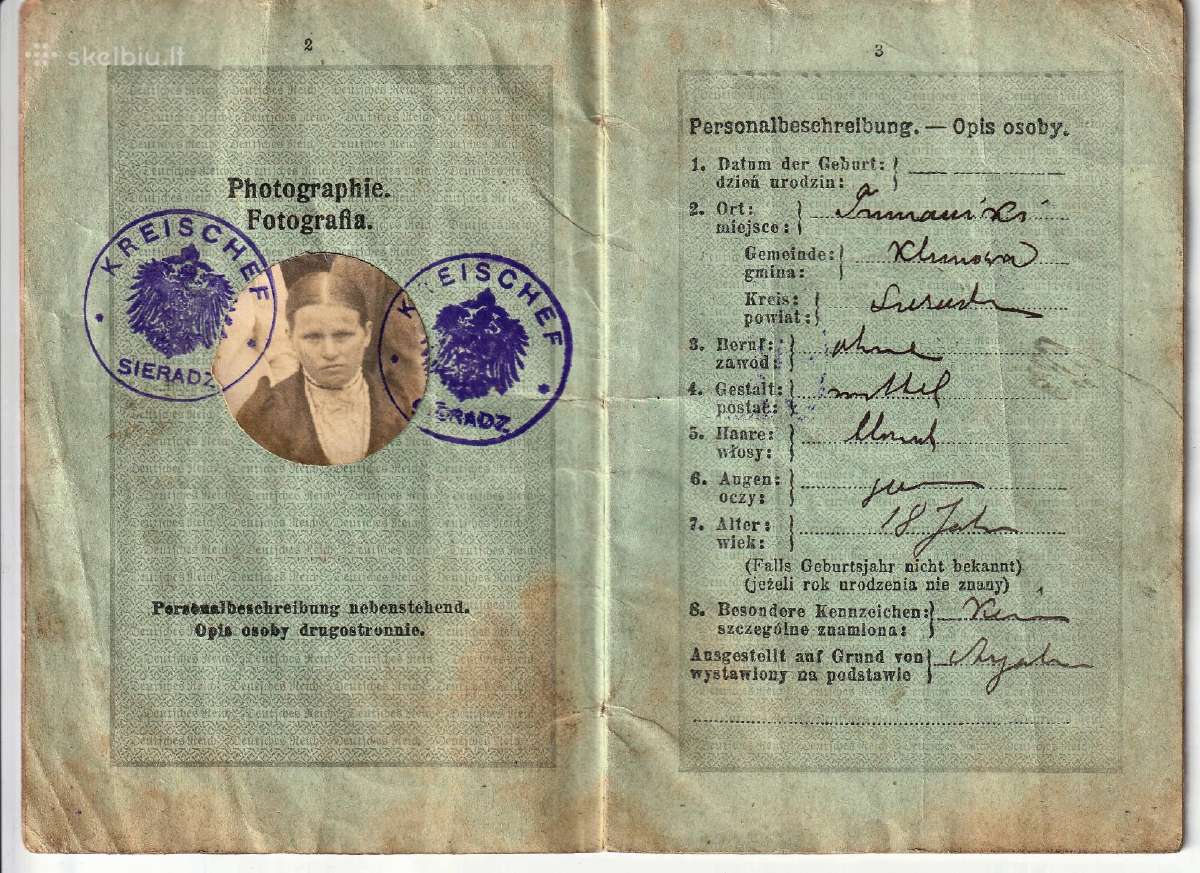 skelbiu.lt
2
Photographie.
Fotografia.
KREISCHEF
SIERADZ
KREISCHEF
SIERADZ
Personalbeschreibung nebenstehend.
Opis osoby drugostronnie.
3
Personalbeschreibung. — Opis osoby.
1. Datum der Geburt:
dzień urodzin:
2. Ort:
miejsce:
Gemeinde: Klonowa
gmina:
Kreis: Sieradz
powiat:
3. Beruf: ohne
zawód:
4. Gestalt: mittel
postać:
5. Haare: blond
włosy:
6. Augen:
oczy:
7. Alter: 18 Jahre
wiek:
(Falls Geburtsjahr nicht bekannt)
(jeżeli rok urodzenia nie znany)
8. Besondere Kennzeichen: Kein
szczególne znamiona:
Ausgestellt auf Grund von
wystawiony na podstawie